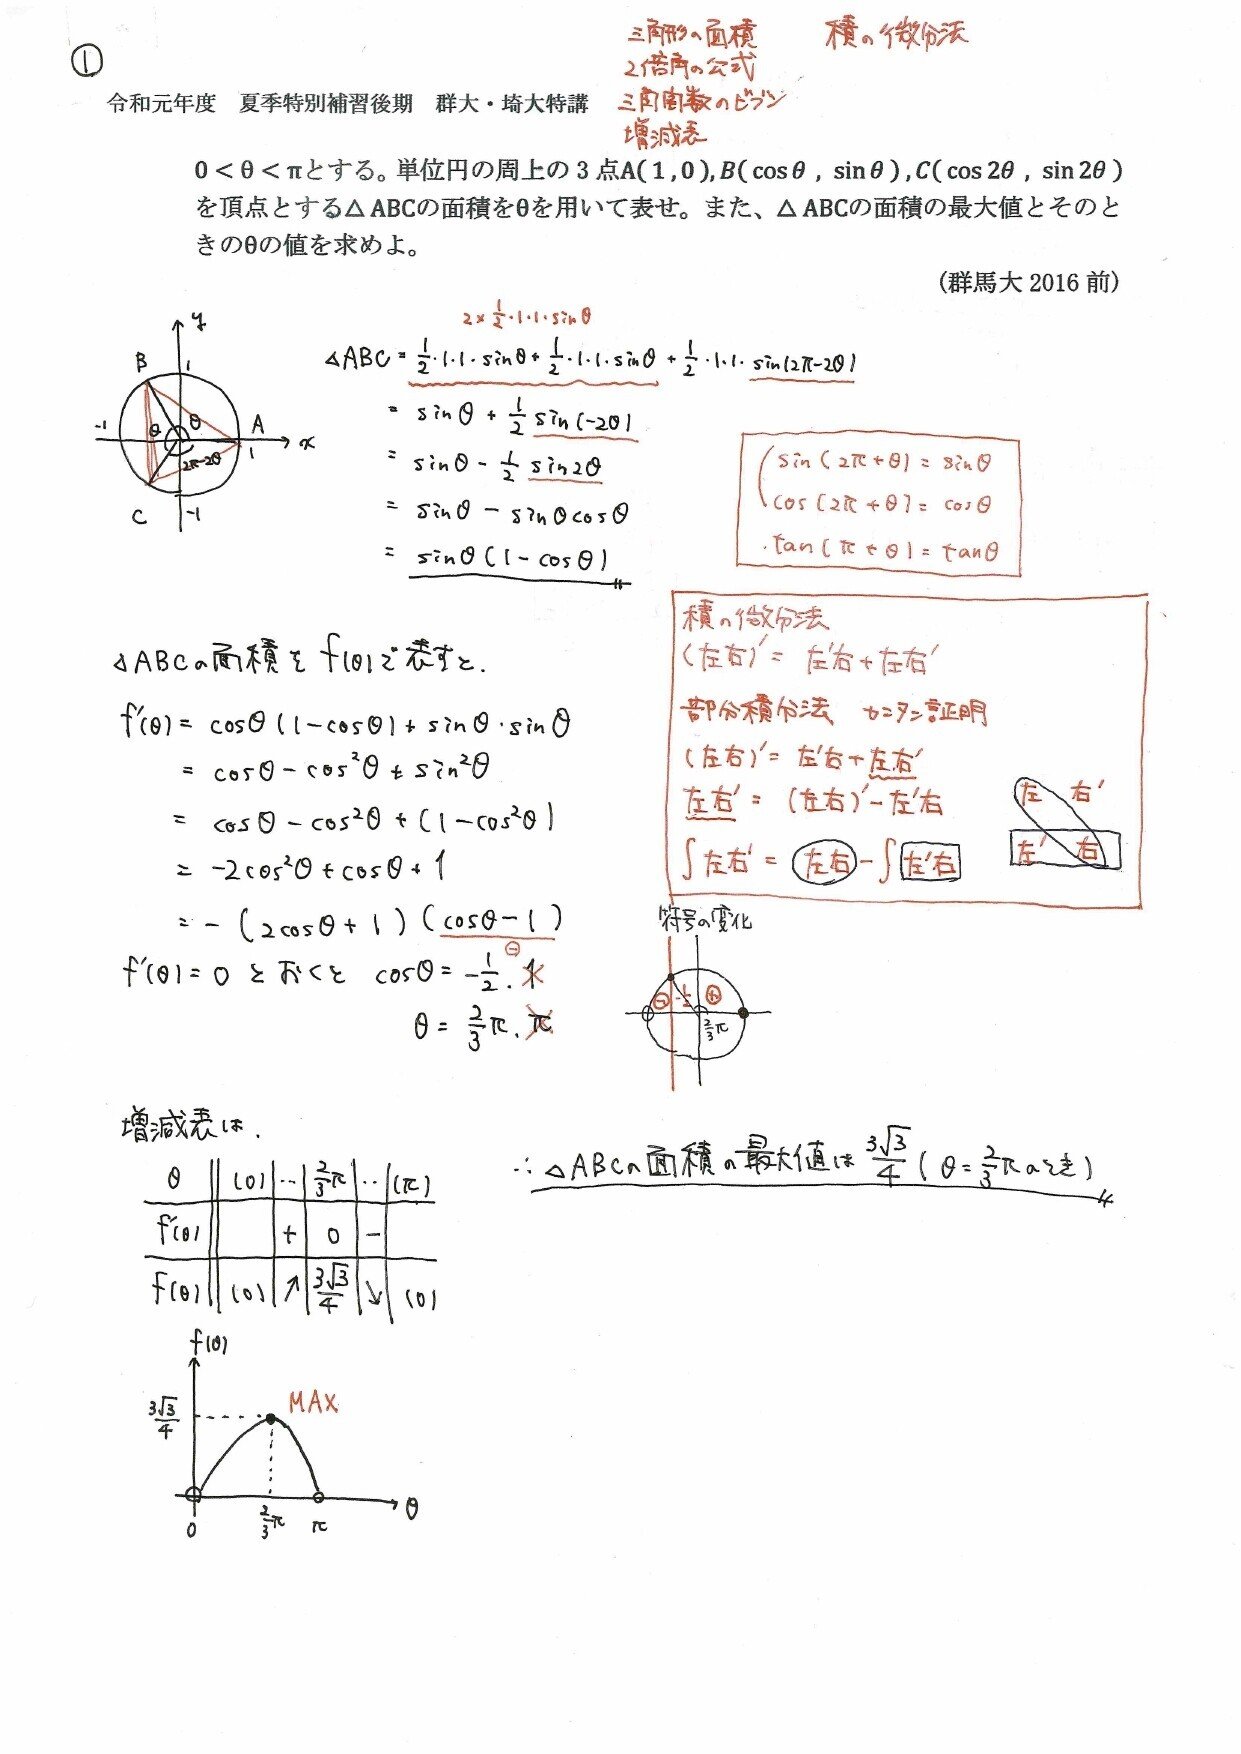 ①
三角形の面積　積の微分法
2倍角の公式
令和元年度　夏季特別補習後期　群大・埼大特講
三角関数のビブン
増減表
0 < θ < πとする。単位円の周上の3点A(1,0),B(cosθ , sinθ),C(cos2θ , sin2θ)
を頂点とする△ABCの面積をθを用いて表せ。また、△ABCの面積の最大値とそのと
きのθの値を求めよ。
(群馬大 2016 前)
y
B
1
-1
θ
θ
A
1
x
2π-2θ
C
-1
2×1/2・1・1・sinθ
△ABC = 1/2・1・1・sinθ + 1/2・1・1・sinθ + 1/2・1・1・sin(2π-2θ)
= sinθ + 1/2 sin(-2θ)
= sinθ - 1/2 sin2θ
= sinθ - sinθcosθ
= sinθ(1-cosθ)
sin(2π+θ) = sinθ
cos(2π+θ) = cosθ
tan(π+θ) = tanθ
積の微分法
(左右)′ = 左′右 + 左右′
部分積分法　カンタン証明
(左右)′ = 左′右 + 左右′
左右′ = (左右)′ - 左′右
∫左右′ = 左右 - ∫左′右
左　右′
左′　右
△ABCの面積をf(θ)で表すと、
f′(θ) = cosθ(1-cosθ) + sinθ・sinθ
= cosθ - cos²θ + sin²θ
= cosθ - cos²θ + (1-cos²θ)
= -2cos²θ + cosθ + 1
= -(2cosθ+1)(cosθ-1)
⊖
f′(θ) = 0 とおくと cosθ = -1/2, 1
θ = 2/3π, π
符号の変化
⊖ -1/2 ⊕
2/3π
増減表は、
θ (0) ‥ 2/3π ‥ (π)
f′(θ) + 0 -
f(θ) (0) ↗ 3√3/4 ↘ (0)
∴ △ABCの面積の最大値は 3√3/4 (θ=2/3πのとき)
f(θ)
3√3/4
MAX
0
2/3π
π
θ